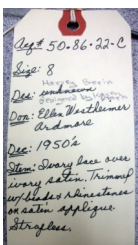 Acq# 50.86.22-C
Size: 8
Des: unknown
Don: Ellen Westheimer
Ardmore
Dec: 1950's
Item: Ivory lace over
ivory satin. Trimmed
w/beads & rhinestones
on satin applique.
Strapless.